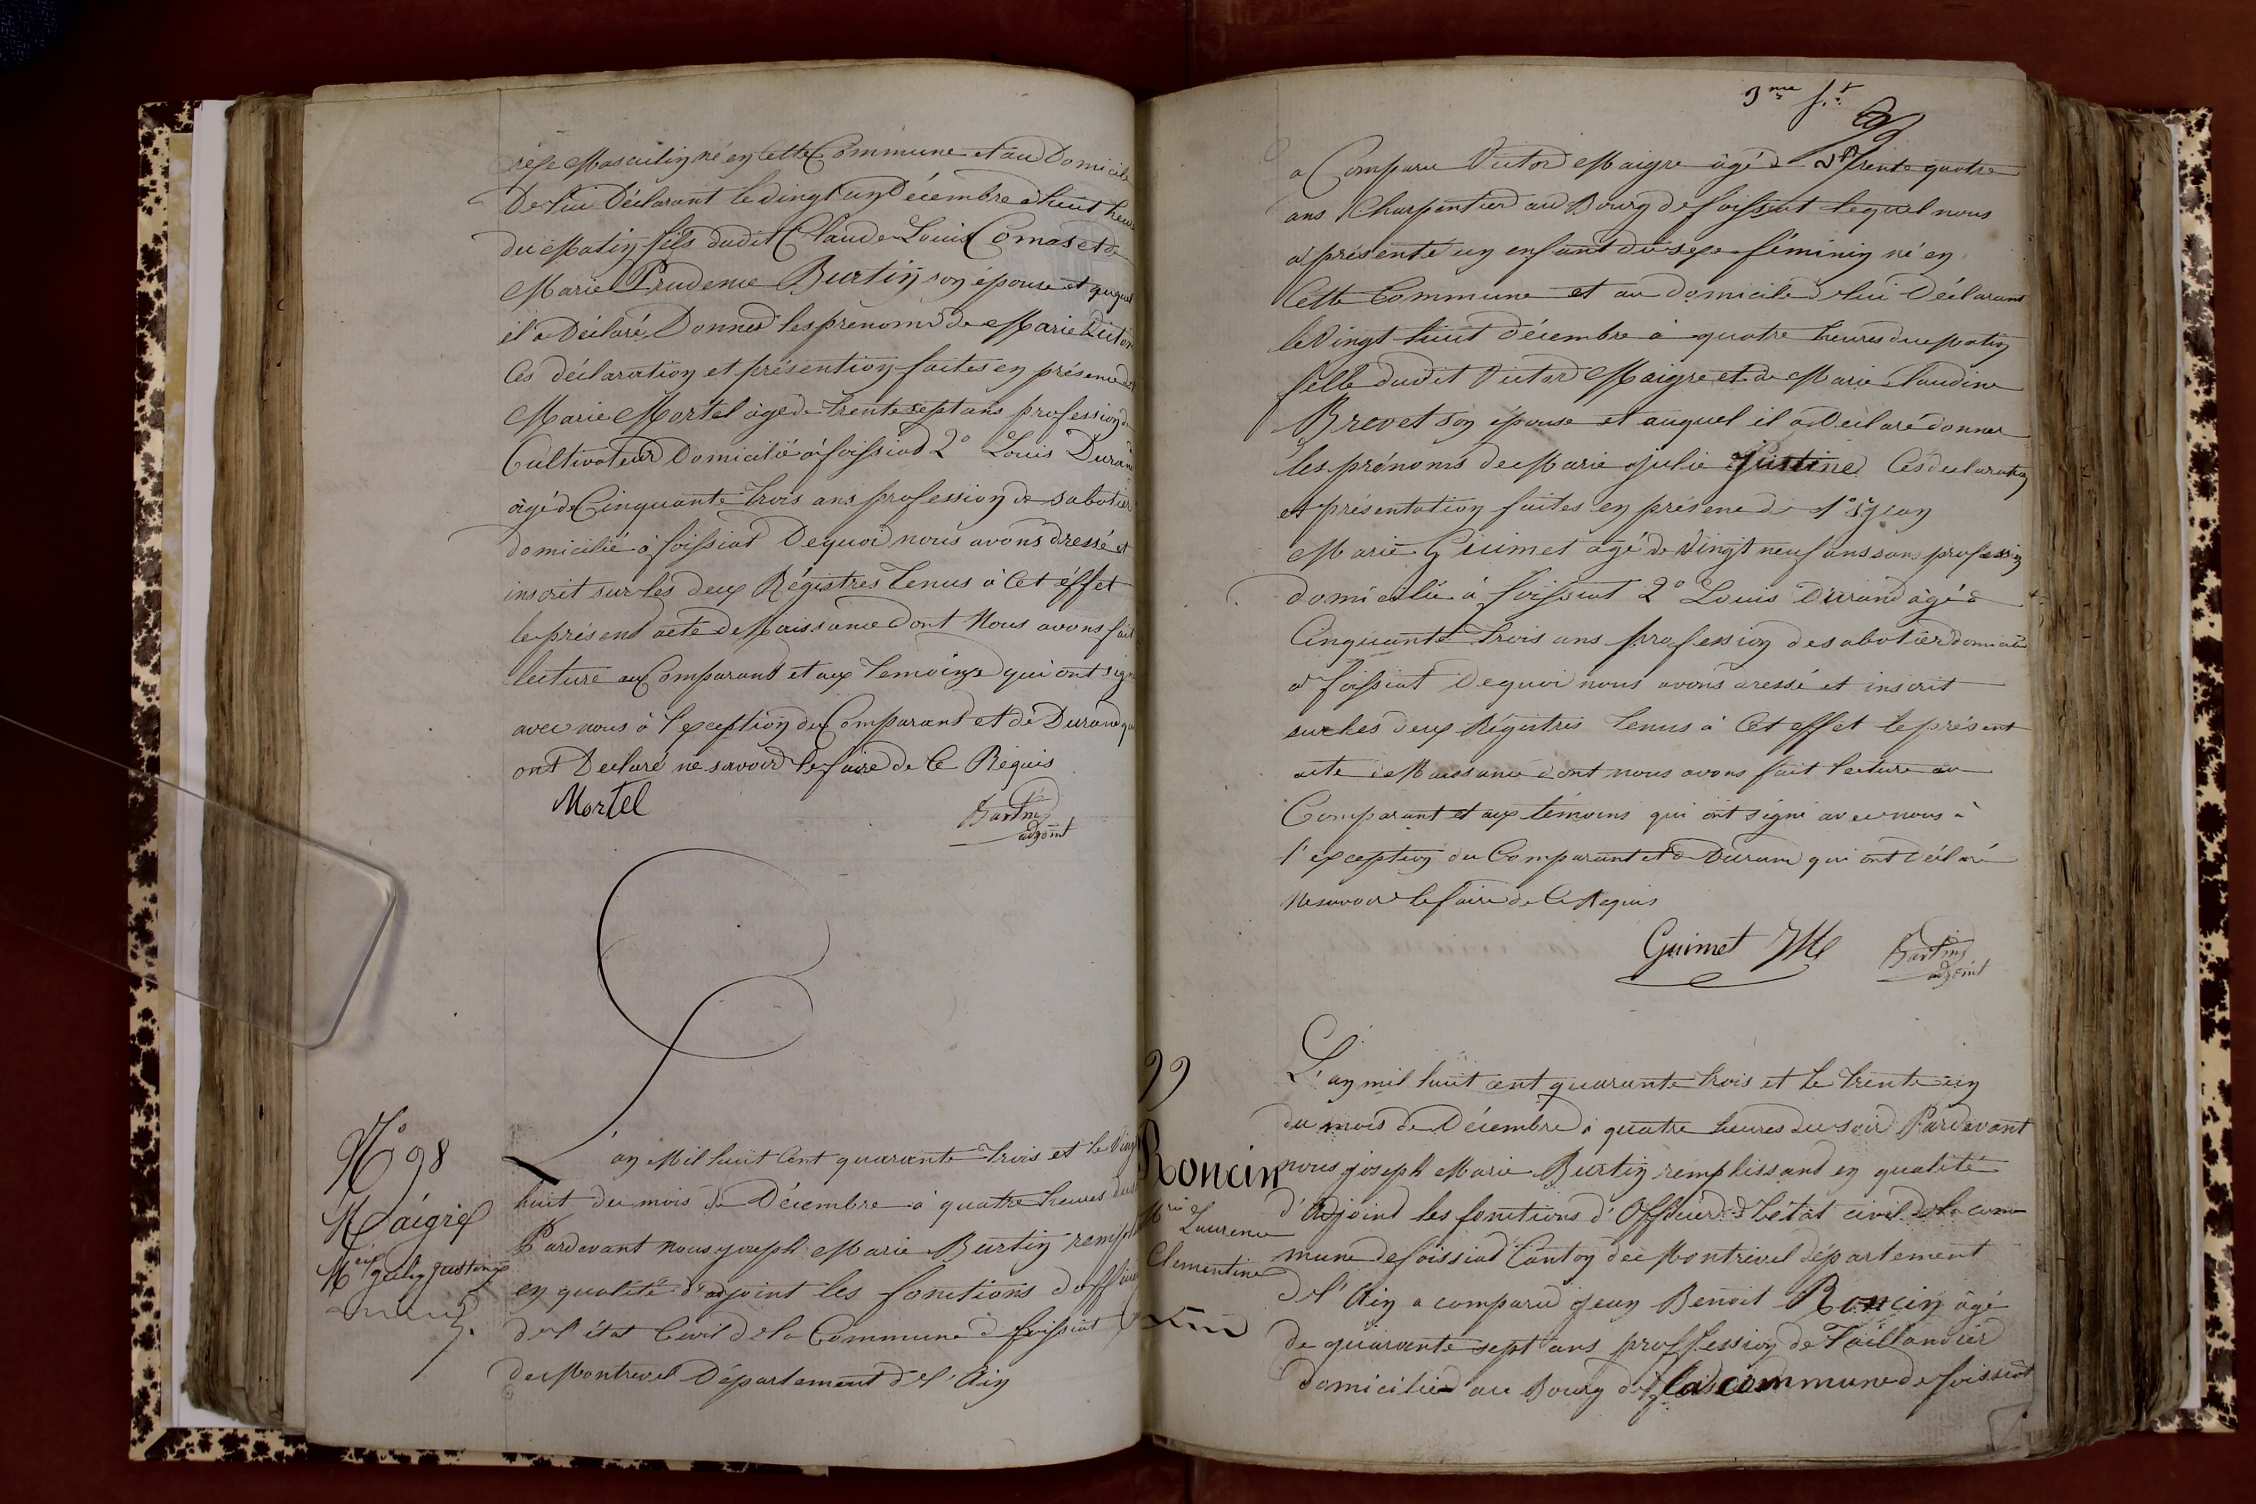 sexe Masculin né en cette Commune et au Domicile
De lui Déclarant le vingt un Décembre à huit heures
du Matin fils dudit Claude Louis Comas et de
Marie Prudence Burtin son épouse et auquel
il a Déclaré Donner les prénoms de Marie Victor
Ces déclaration et présention faites en présence de
Marie Mortel âgé de trente sept ans profession de
Cultivateur Domicilié à foissiat 2° Louis Durand
âgé de Cinquante trois ans profession de sabotier
domicilié à foissiat De quoi nous avons dressé et
inscrit sur les deux Régistres tenus à Cet éffet
le présent acte de Naissance dont Nous avons fait
lecture au Comparant et aux temoins qui ont signé
avec nous à l'exception du Comparant et de Durand qui
ont Déclaré ne savoir le faire de Ce Requis
Mortel
Burtin
adjoint
N° 98
Maigre
Mie julie justine
L'an Mil huit Cent quarante trois et le vingt
huit du mois de Décembre à quatre heures du
Pardevant nous joseph Marie Burtin rempli
en qualité d'adjoint les fonctions d'officier
de l'état Civil de la Commune de foissiat
de Montrevel Département de l'Ain
3me f.t
a Comparu Victor Maigre âgé de trente quatre
ans Charpentier au Bourg de foissiat lequel nous
a présenté un enfant du sexe féminin né en
Cette Commune et au domicile de lui Déclarant
le vingt huit décembre à quatre heures du matin
fille dudit Victor Maigre et de Marie Claudine
Brevet son épouse et auquel il a Déclaré donner
les prénoms de Marie julie Justine Ces déclaration
et présentation faites en présence de 1° jean
Marie Guimet âgé de vingt neuf ans sans profession
domicilié à foissiat 2° Louis Durand âgé de
Cinquante trois ans profession de sabotier domicilié
à foissiat De quoi nous avons dressé et inscrit
sur les deux Régistres tenus à Cet effet le présent
acte de Naissance dont nous avons fait lecture au
Comparant et aux témoins qui ont signé avec nous à
l'exception du Comparant et de Durand qui ont déclaré
ne savoir le faire de Ce Requis
Guimet JM
Burtin
adjoint
99
Roncin
Mie Laurence
Clementine
L'an mil huit cent quarante trois et le trente un
du mois de Décembre à quatre heures du soir Pardevant
nous joseph Marie Burtin remplissant en qualité
d'Adjoint les fonctions d'Officier de l'état civil de la com
mune de foissiat Canton de Montrevel département
de l'Ain a comparu jean Benoit Roncin âgé
de quarante sept ans proffession de Taillandier
domicilié au Bourg de la commune de foissiat